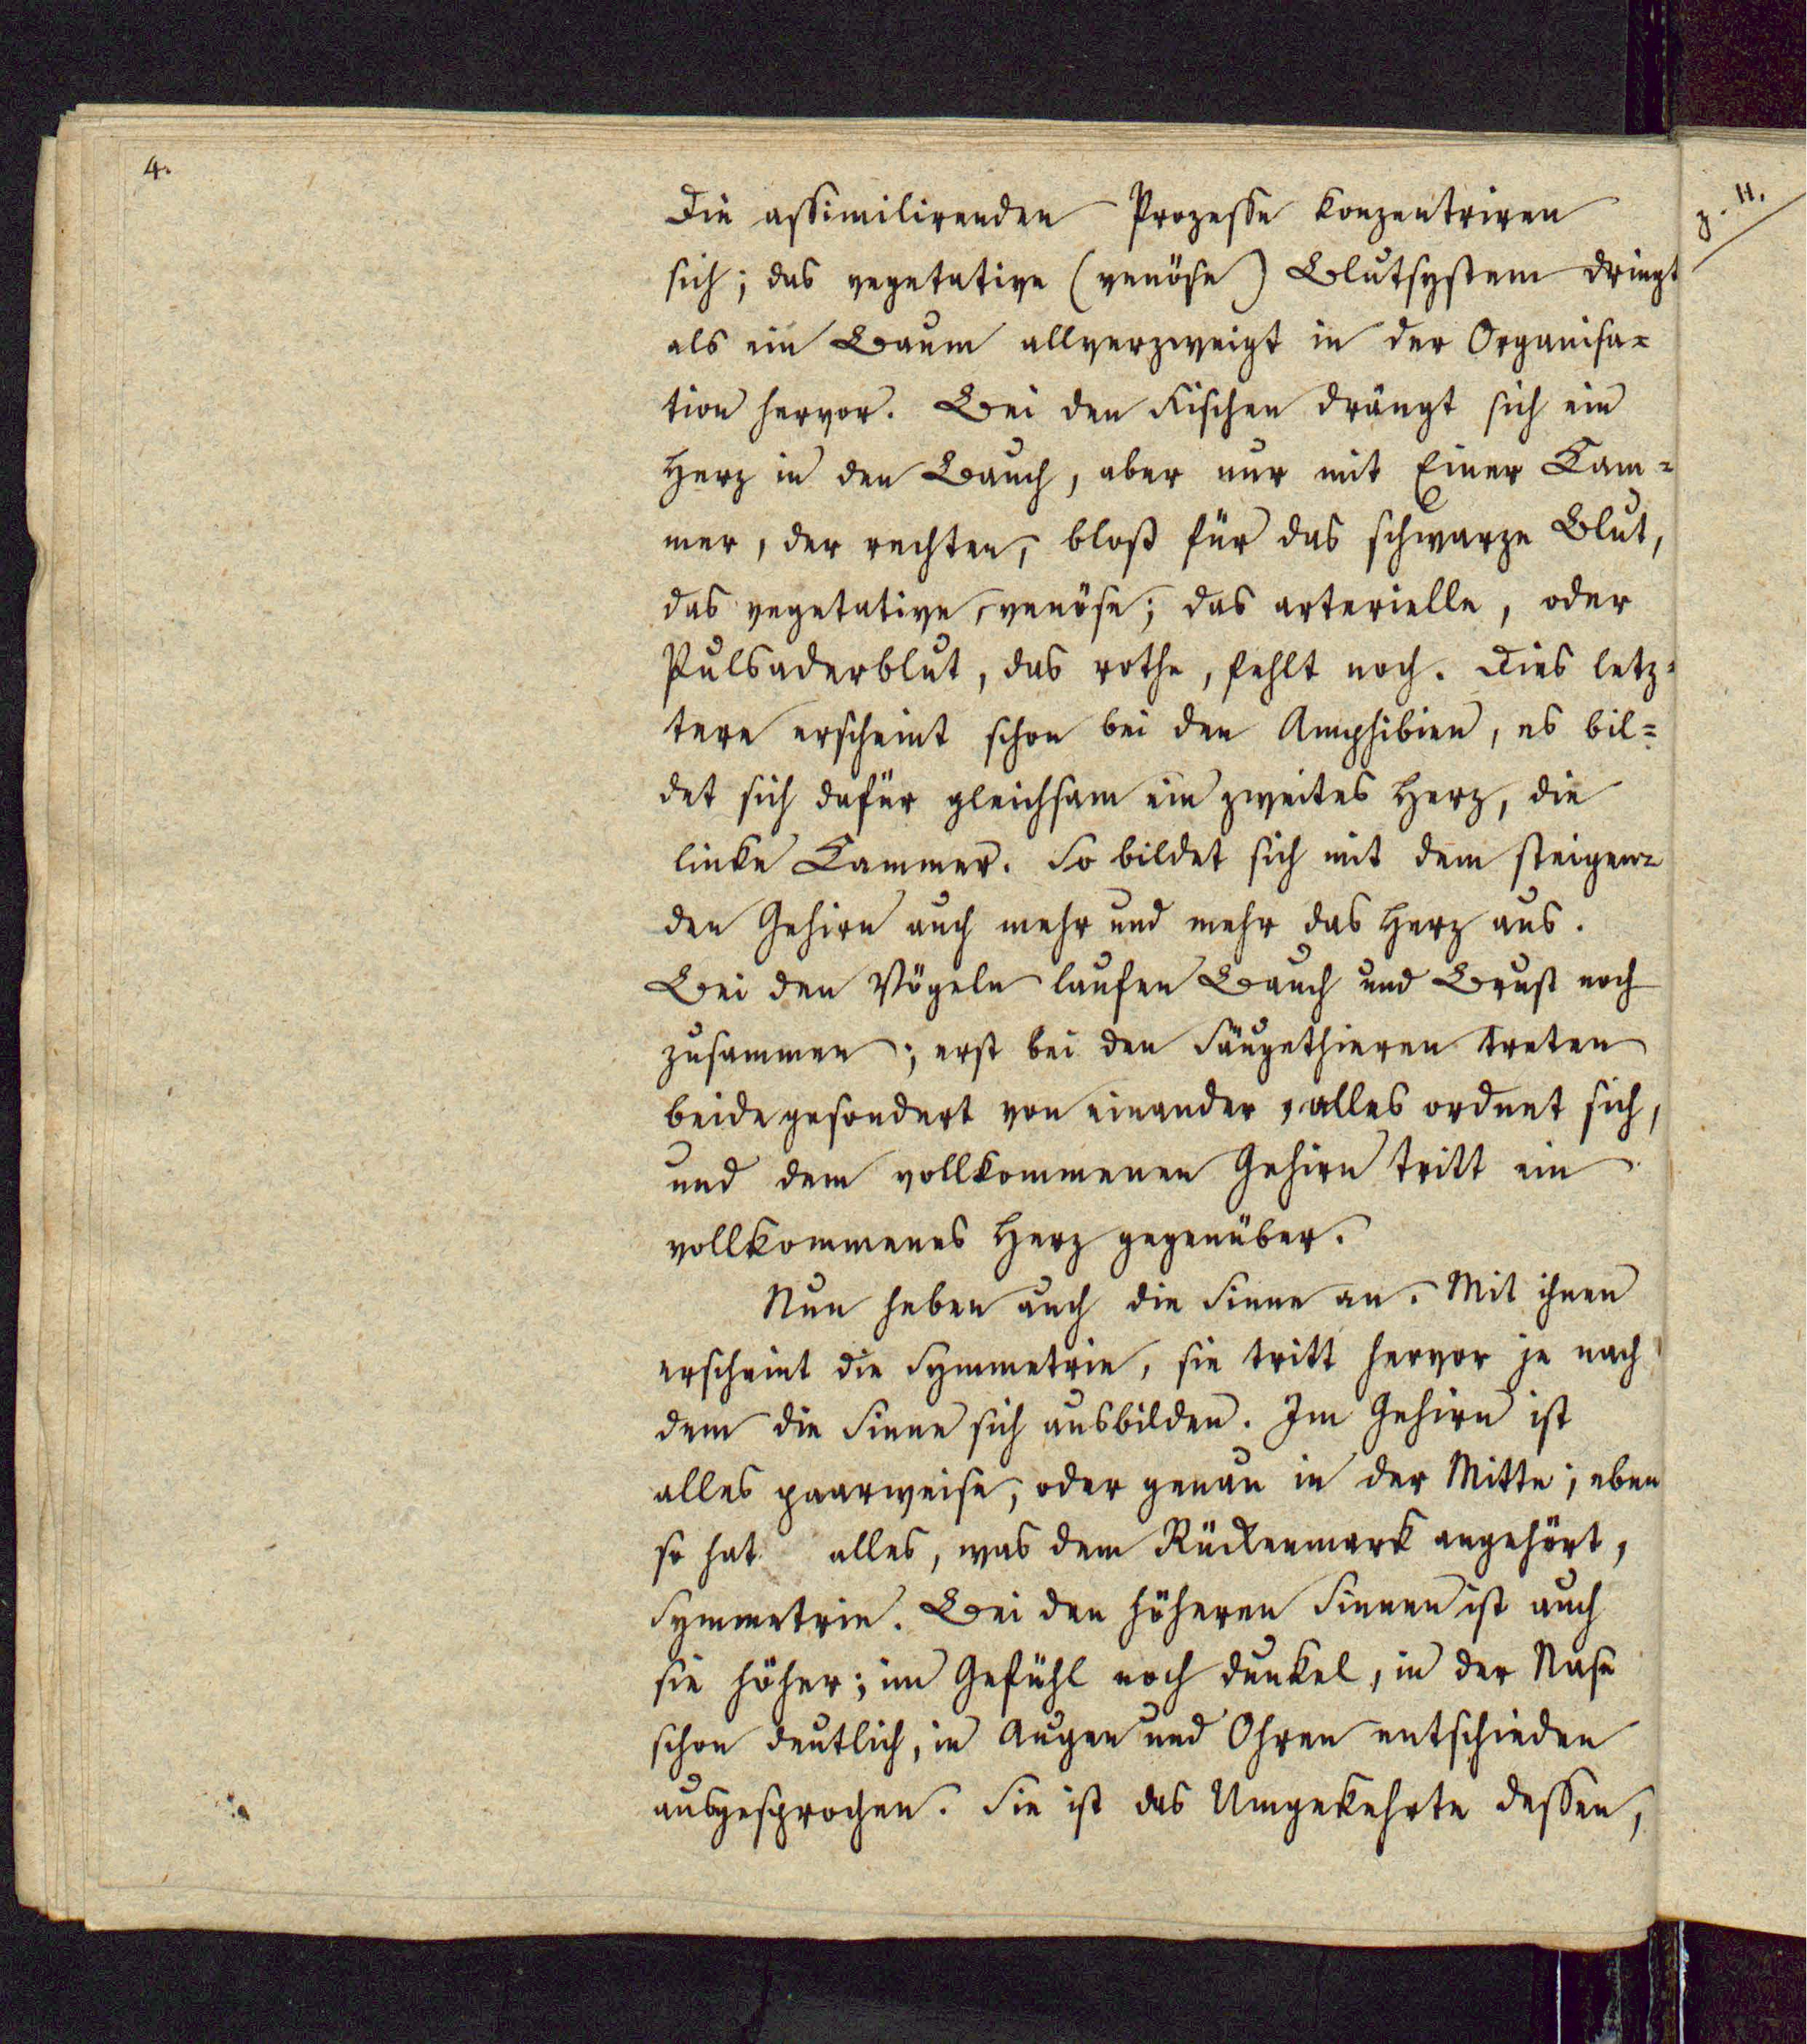 4.
Die assimilirenden Prozesse konzentriren
sich; das vegetative (venöse) Blutsystem dringt
als ein Baum allverzweigt in der Organisa=
tion hervor. Bei den Fischen drängt sich ein
Herz in den Bauch, aber nur mit Einer Kam=
mer, der rechten, bloß für das schwarze Blut,
das vegetative, venöse; das arterielle, oder
Pulsaderblut, das rothe, fehlt noch. Dies letz=
tere erscheint schon bei den Amphibien, es bil=
det sich dafür gleichsam ein zweites Herz, die
linke Kammer. So bildet sich mit dem steigen=
den Gehirn auch mehr und mehr das Herz aus.
Bei den Vögeln laufen Bauch und Brust noch
zusammen; erst bei den Säugethieren treten
beide gesondert von einander, alles ordnet sich,
und dem vollkommenen Gehirn tritt ein
vollkommenes Herz gegenüber.
Nun heben auch die Sinne an. Mit ihnen
erscheint die Symmetrie, sie tritt hervor je nach
dem die Sinne sich ausbilden. Im Gehirn ist
alles paarweise, oder genau in der Mitte; eben
so hat alles, was dem Rückenmark angehört,
Symmetrie. Bei den höheren Sinnen ist auch
sie höher; im Gefühl noch dunkel, in der Nase
schon deutlich, in Augen und Ohren entschieden
ausgesprochen. Sie ist das Umgekehrte dessen,